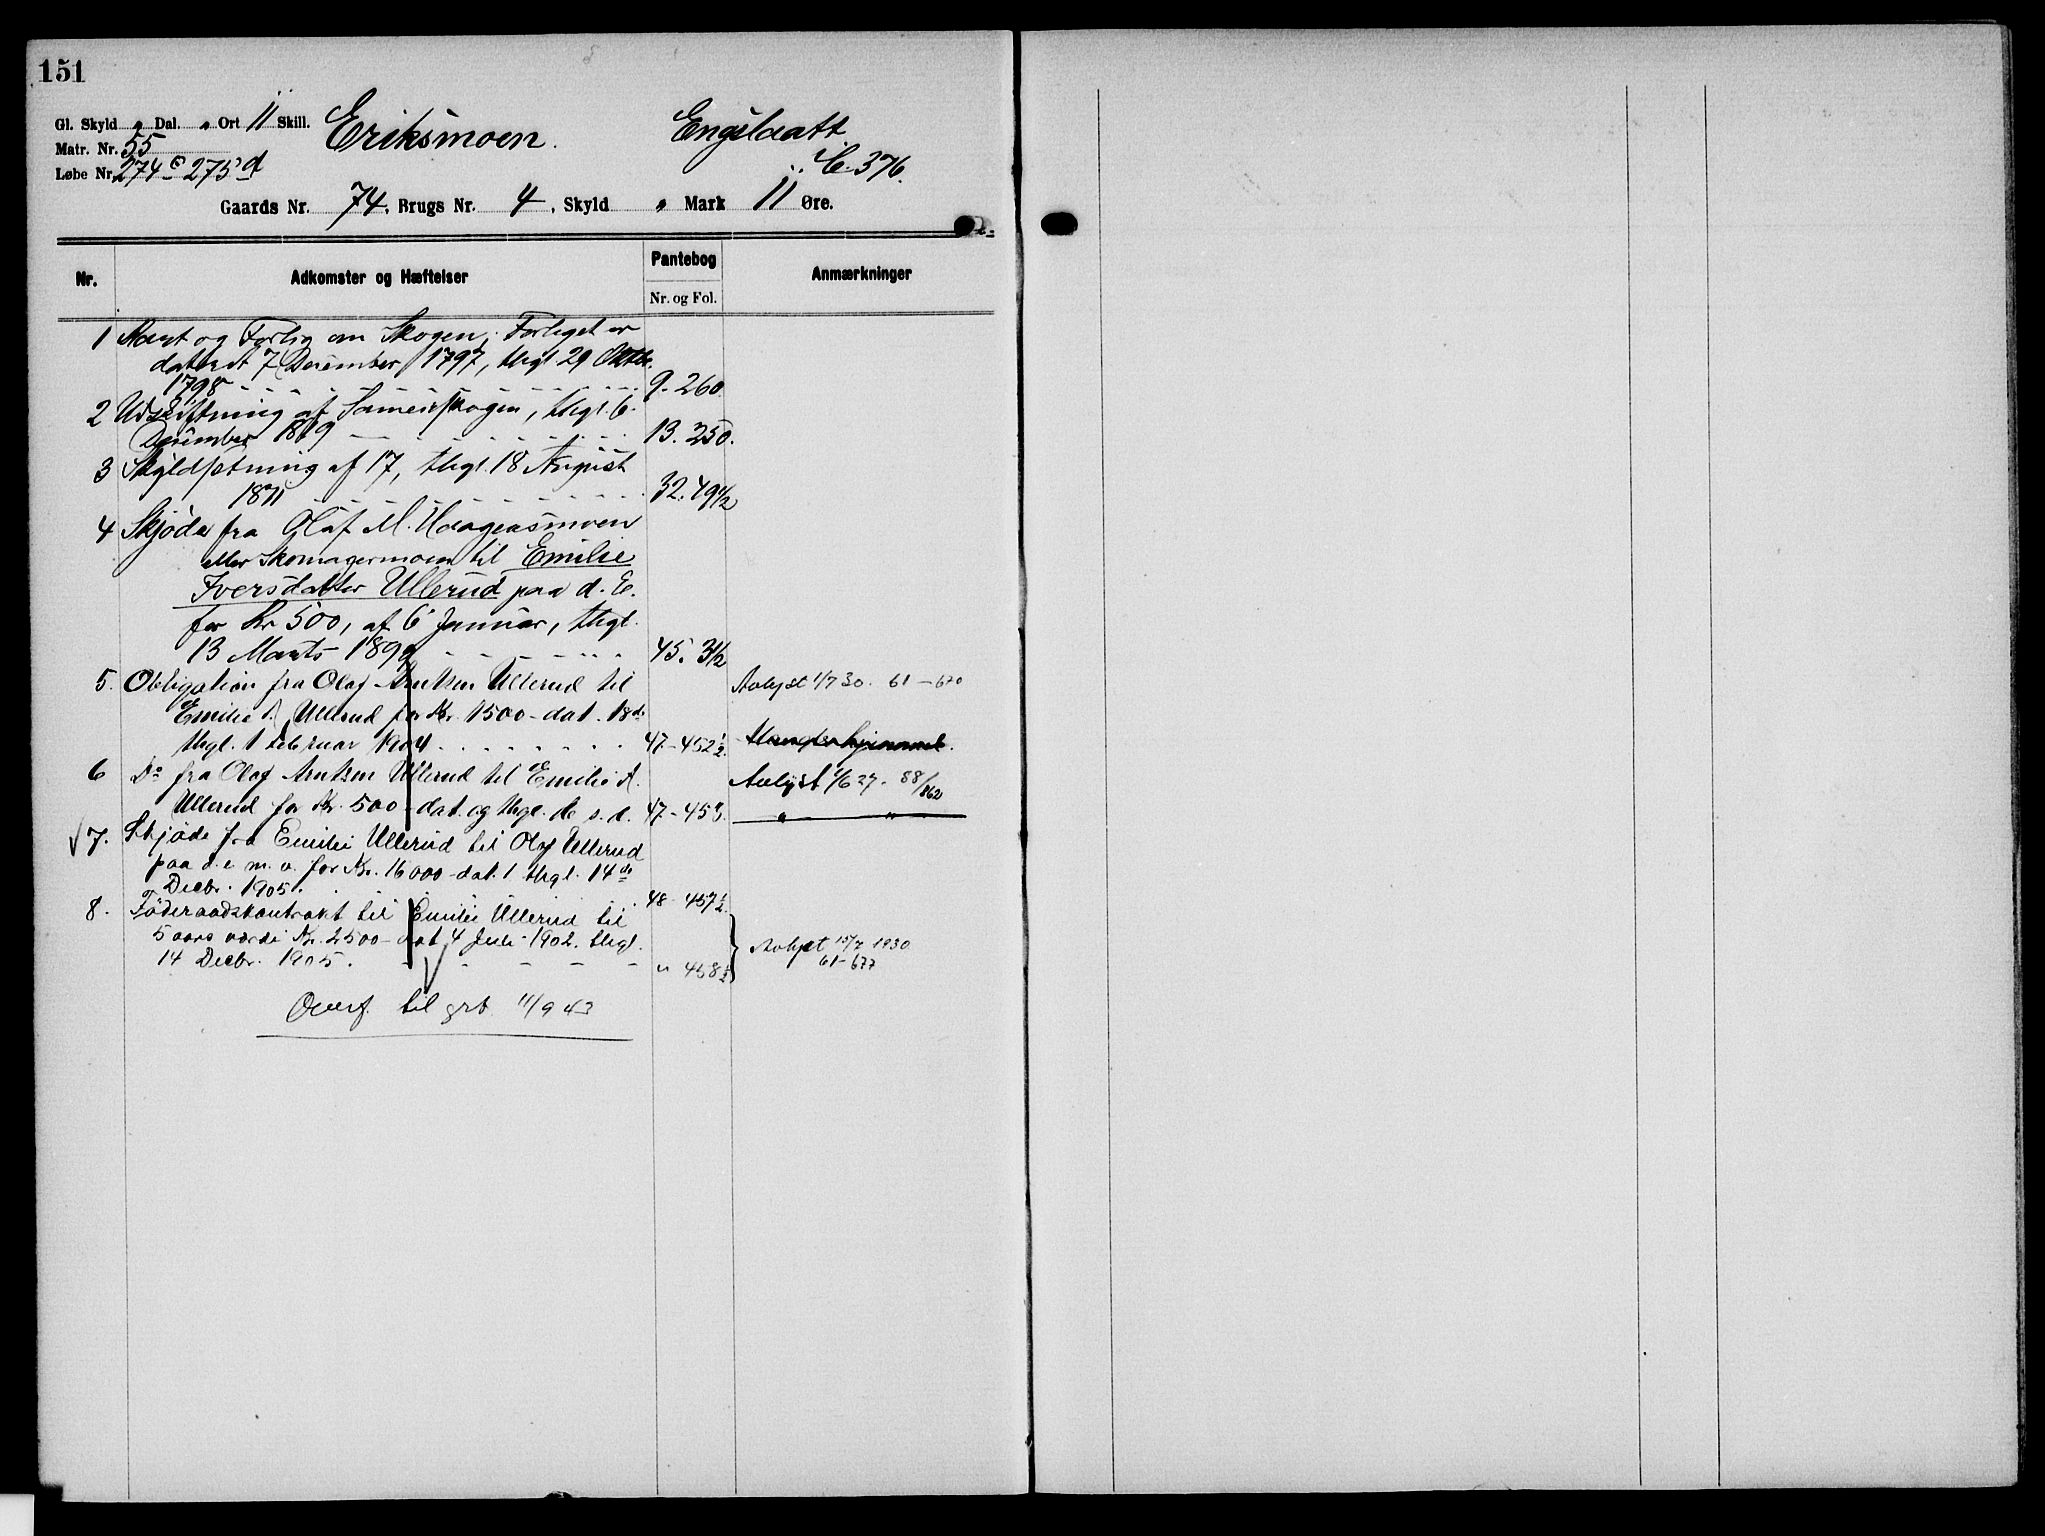 151
Gl. Skyld " Dal. " Ort 11 Skill. Eriksmoen. Engslaatt
Matr. Nr. 55
Løbe Nr. 274 c 275 d C. 376.
Gaards Nr. 74, Brugs Nr. 4, Skyld " Mark 11 Øre.
Nr. Adkomster og Hæftelser Pantebog Anmærkninger
Nr. og Fol.
1 og Forlig om Skogen; Forliget er
dateret 7 December 1797, thgl. 29 Oktbr.
1798 9. 260.
2 Udskiftning af Sameieskogen, thgl. 6.
December 1819 13. 250.
3 Skyldsetning af 17, thgl. 18 August
1871 32. 49 1/2
4 Skjøde fra Olaf M. Haagensmoen
eller Skomagermoen til Emilie
Iversdatter Ullerud paa d. E.
for Kr 500, af 6 Januar, thgl.
13 Marts 1899 45. 3 1/2
5. Obligation fra Olaf Arntsen Ullerud til Avlyst 1/7 30. 61 - 670
Emilie Ullerud for Kr. 1500 - dat. 18 de
thgl. 1 Februar 1904 47 - 452 1/2.
6 Do fra Olaf Arntsen Ullerud til Emilie Avlyst 1/6 27. 58/862
Ullerud for Kr. 500 - dat. og thgl. de s. d. 47 - 453. " "
7. Skjøde fra Emilie Ullerud til Olaf Ullerud
paa d. e. m. v. for Kr. 16000 - dat. 1 thgl. 14 de
Decbr. 1905. 48 - 457 1/2.
8. Føderaadskontrakt til Emilie Ullerud til
5 aars værdi Kr. 2500 - dat 4 Juli 1902. thgl. Avlyst 15/7 1930
14 Decbr. 1905. " 458 1/2 61 - 677
Overf. til grb. 11/9 43